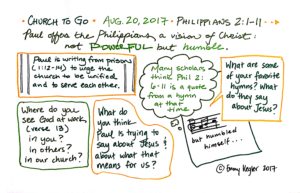 • CHURCH TO GO • AUG. 20, 2017 • PHILIPPIANS 2:1-11 •
Paul offers the Philippians a vision of Christ:
not POWERFUL but humble.
Paul is writing from prison
(1:12-14) to urge the
church to be unified
and to serve each other.
Many scholars
think Phil 2:
6-11 is a quote
from a hymn
at that
time
What are some
of your favorite
hymns? What
do they say
about Jesus?
Where do you
see God at work,
(verse 13)
in you?
in others?
in our church?
What do
you think
Paul is trying to
say about Jesus?
about what that
means for us?
but humbled
himself...
© Emmy Kegler 2017